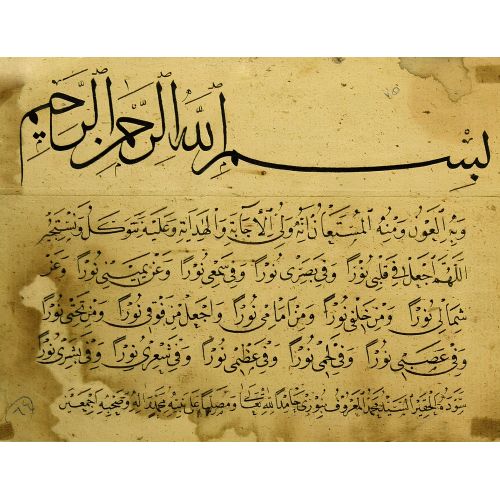 بسم الله الرحمن الرحيم
وبه العون ومنه المستعان إنه ولي الإجابة والهداية وعليه نتوكل ونستجير
اللهم اجعل في قلبي نورًا وفي بصري نورًا وفي سمعي نورًا وعن يميني نورًا وعن
شمالي نورًا ومن خلفي نورًا ومن أمامي نورًا واجعل من فوقي نورًا ومن تحتي نورًا
وفي عصبي نورًا وفي لحمي نورًا وفي عظمي نورًا وفي شعري نورًا وفي بشري نورًا
سوده الحقير السيد محمد المعروف حامدا لله تعالى ومصليا على نبيه محمد وآله وصحبه أجمعين